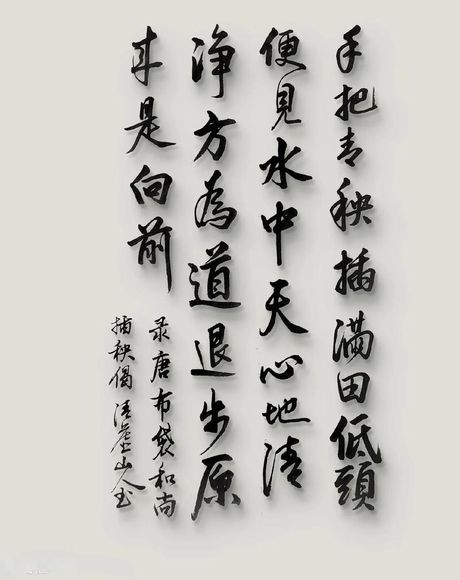 手把青秧插滿田低頭
便見水中天心地清
淨方為道退步原
来是向前
录唐布袋和尚
插秧偈